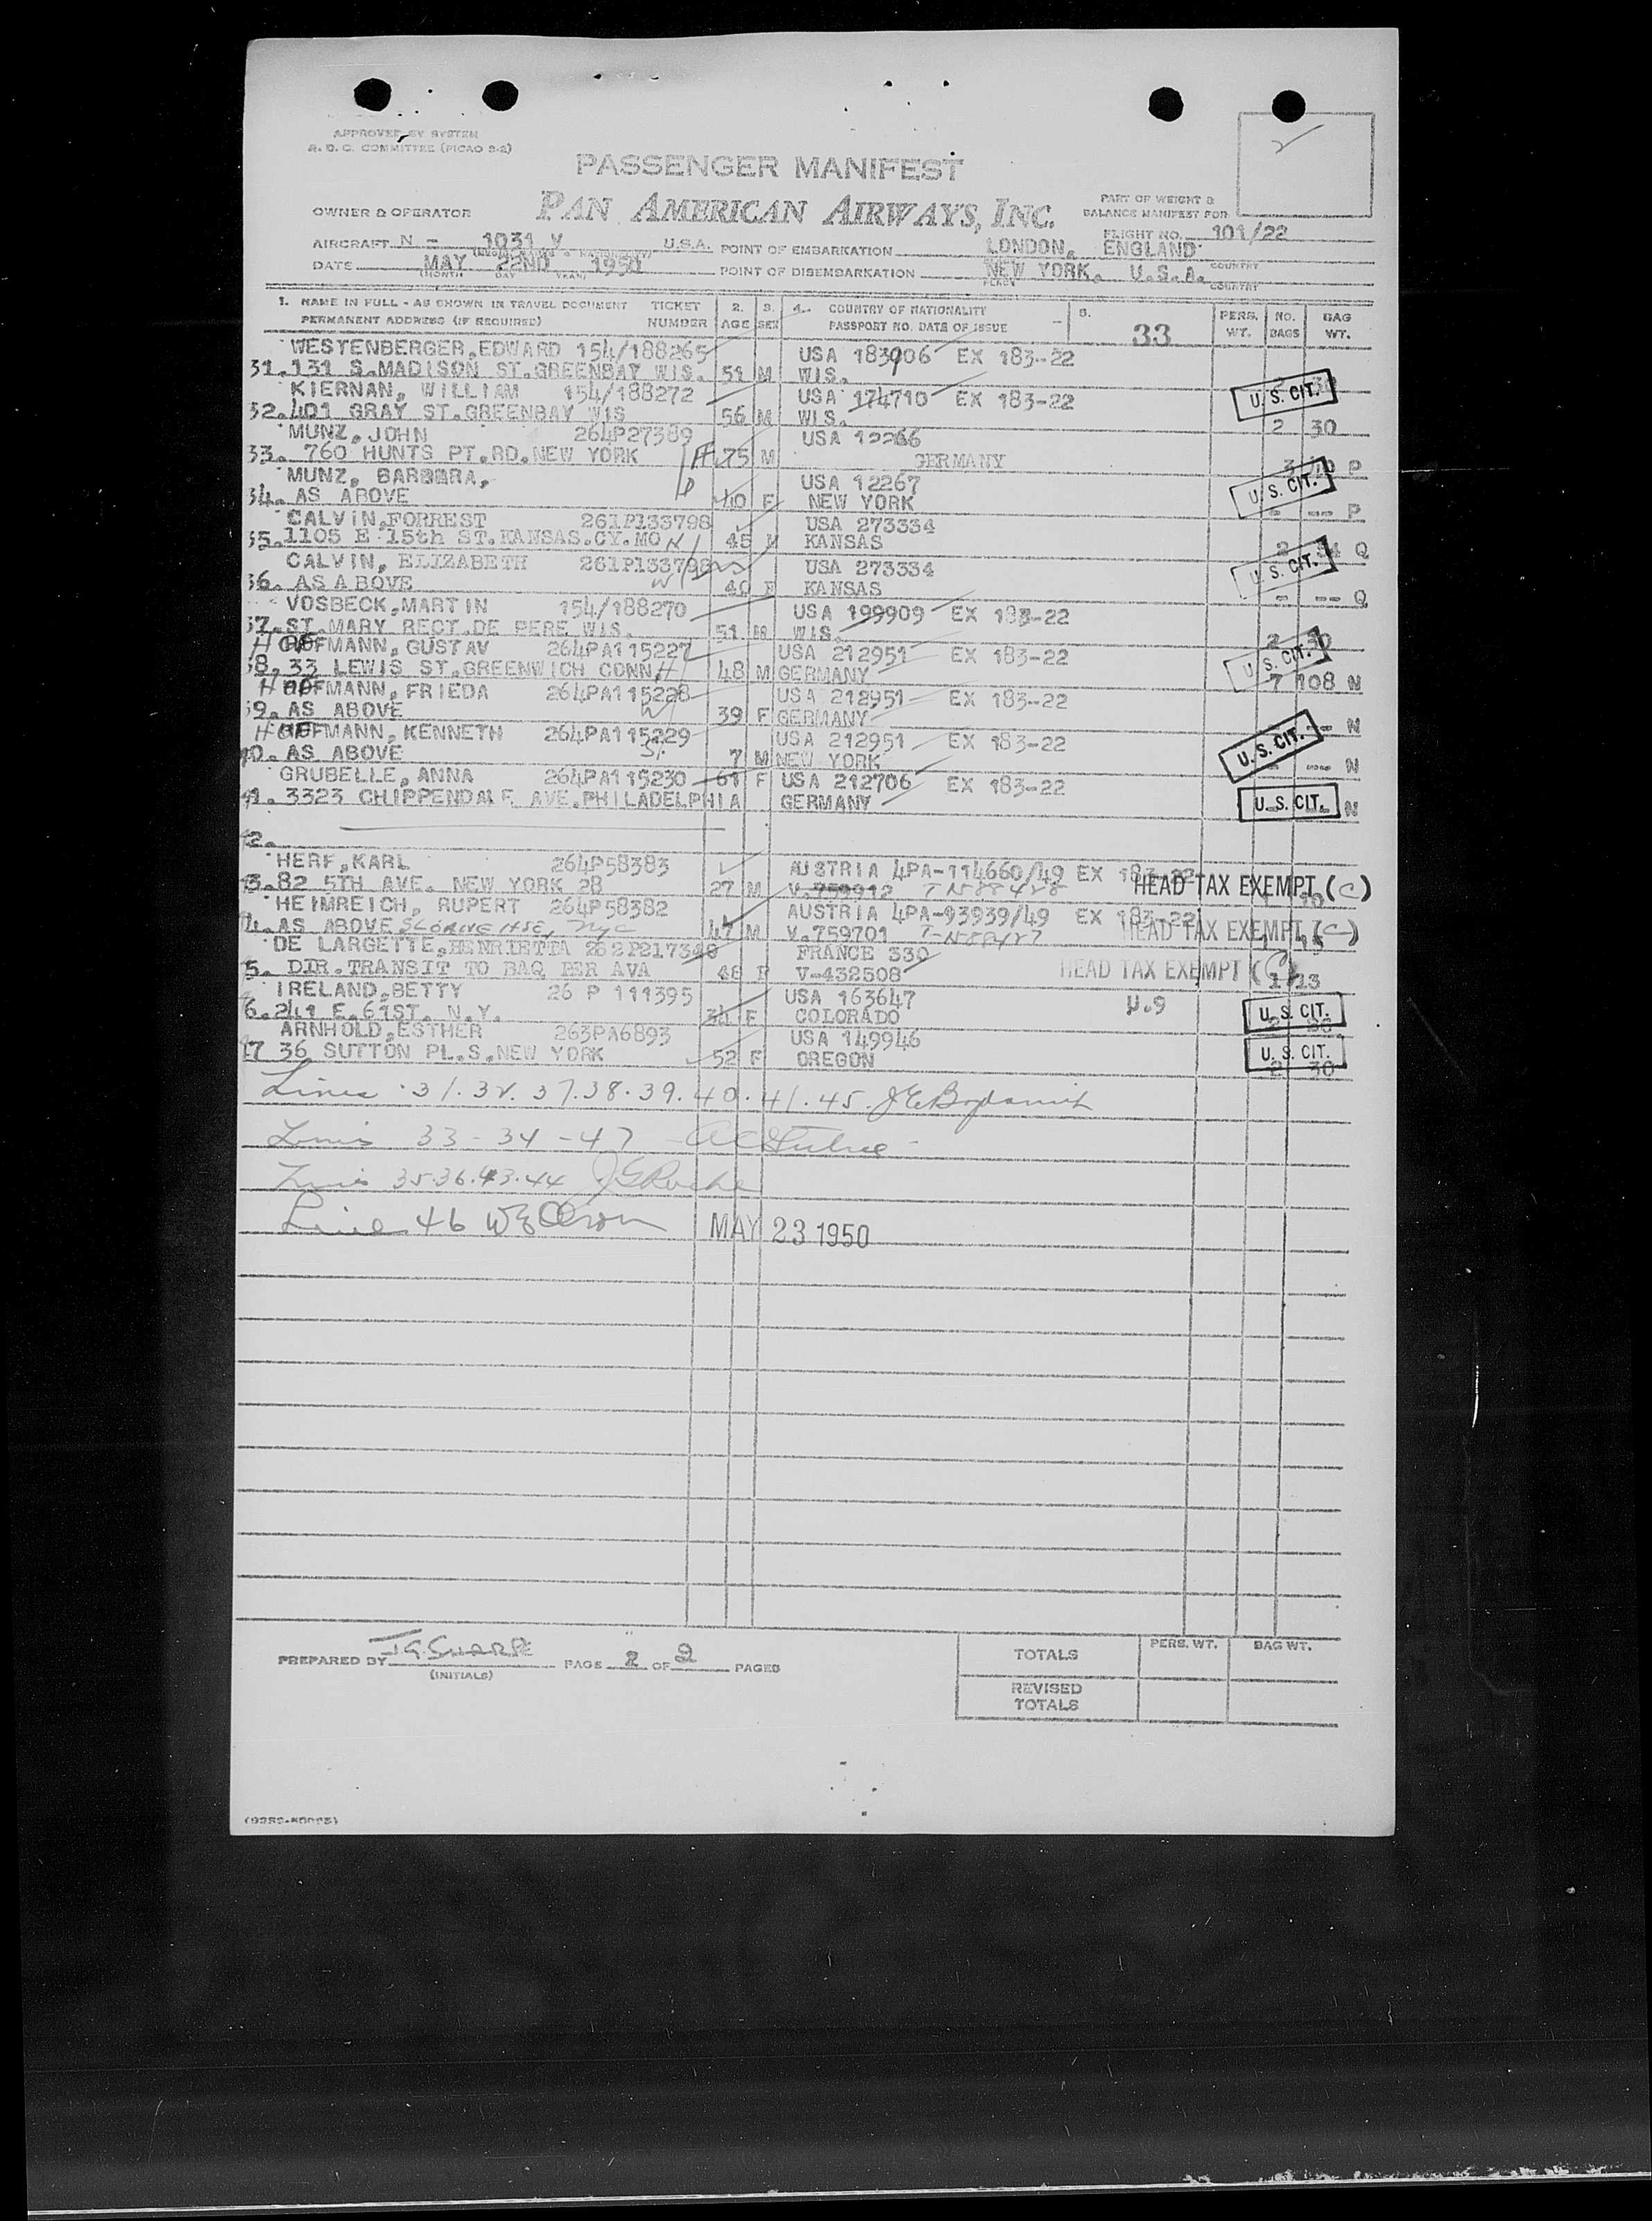 APPROVED BY SYSTEM
R. D. C. COMMITTEE (PICAO 3-2)
PASSENGER MANIFEST
OWNER & OPERATOR PAN AMERICAN AIRWAYS, INC. PART OF WEIGHT & BALANCE MANIFEST FOR
FLIGHT NO. 101/22
AIRCRAFT N - 1031 V U.S.A. POINT OF EMBARKATION LONDON, ENGLAND
DATE MAY 22ND 1950 POINT OF DISEMBARKATION NEW YORK, U.S.A.
(MONTH DAY YEAR) PLACE COUNTRY
1. NAME IN FULL - AS SHOWN IN TRAVEL DOCUMENT TICKET 2. 3. 4. COUNTRY OF NATIONALITY 5. PERS. NO. BAG
PERMANENT ADDRESS (IF REQUIRED) NUMBER AGE SEX PASSPORT NO. DATE OF ISSUE 33 WT. BAGS WT.
WESTENBERGER, EDWARD 154/188265 USA 183906 EX 183-22
31. 131 S.MADISON ST.GREENBAY WIS. 51 M WIS.
KIERNAN, WILLIAM 154/188272 USA 174710 EX 183-22 U.S. CIT.
32. 401 GRAY ST.GREENBAY WIS 56 M WIS. 2 30
MUNZ, JOHN 264P27389 USA 12266
33. 760 HUNTS PT.RD.NEW YORK H 75 M GERMANY P
MUNZ, BARBARA, USA 12267 U.S. CIT.
34. AS ABOVE 40 F NEW YORK - -- P
CALVIN, FORREST 261P133798 USA 273334
35. 1105 E 15th ST.KANSAS.CY.MO H 45 M KANSAS 2 Q
CALVIN, ELIZABETH 261P133798 USA 273334 U.S. CIT.
36. AS ABOVE W 40 F KANSAS - -- Q
VOSBECK, MARTIN 154/188270 USA 199909 EX 183-22
37. ST.MARY RECT.DE PERE WIS. 51 M WIS. 2 30
HOFFMANN, GUSTAV 264PA115227 USA 212951 EX 183-22 U.S. CIT.
38. 33 LEWIS ST.GREENWICH CONN. H 48 M GERMANY 7 108 N
HOFFMANN, FRIEDA 264PA115228 USA 212951 EX 183-22
39. AS ABOVE W 39 F GERMANY -- N
HOFFMANN, KENNETH 264PA115229 USA 212951 EX 183-22 U.S. CIT.
40. AS ABOVE S. 7 M NEW YORK --- N
GRUBELLE, ANNA 264PA115230 61 F USA 212706 EX 183-22
41. 3323 CHIPPENDALE AVE.PHILADELPHIA GERMANY U.S. CIT. N
42.
HERF, KARL 264P58383 AUSTRIA 4PA-114660/49 EX 183-22
43. 82 5TH AVE. NEW YORK 28 27 M V.759912 HEAD TAX EXEMPT (C)
HEIMREICH, RUPERT 264P58382 AUSTRIA 4PA-93939/49 EX 183-22
44. AS ABOVE NYC 47 M V.759701 HEAD TAX EXEMPT (C)
DE LARGETTE, HENRIETTA 262P217340 FRANCE 330
45. DIR.TRANSIT TO BAQ PER AVA 48 F V-432508 HEAD TAX EXEMPT (C) 1 13
IRELAND, BETTY 26 P 111395 USA 163647
46. 241 E.61ST. N.Y. F COLORADO U.S. CIT.
ARNHOLD, ESTHER 263PA6893 USA 149946
47 36 SUTTON PL.S.NEW YORK 52 F OREGON U.S. CIT. 2 30
Lines 31. 32. 37. 38. 39. 40. 41. 45.
Lines 33 - 34 - 47
Lines 35.36.43.44 J G Roche
Line 46 W E Olson MAY 23 1950
PREPARED BY J.G. SHARPE PAGE 2 OF 2 PAGES
(INITIALS)
TOTALS PERS. WT. BAG WT.
REVISED TOTALS